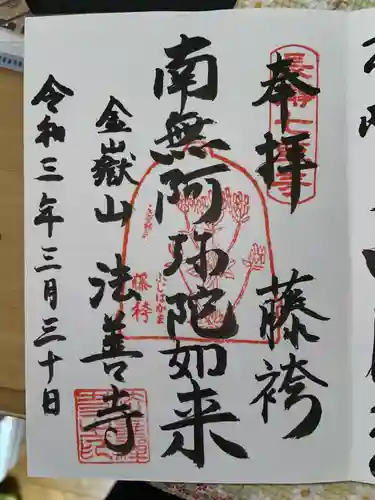 奉拝
藤袴
南無阿弥陀如来
ふじばかま
藤袴
金嶽山 法善寺
令和三年三月三十日